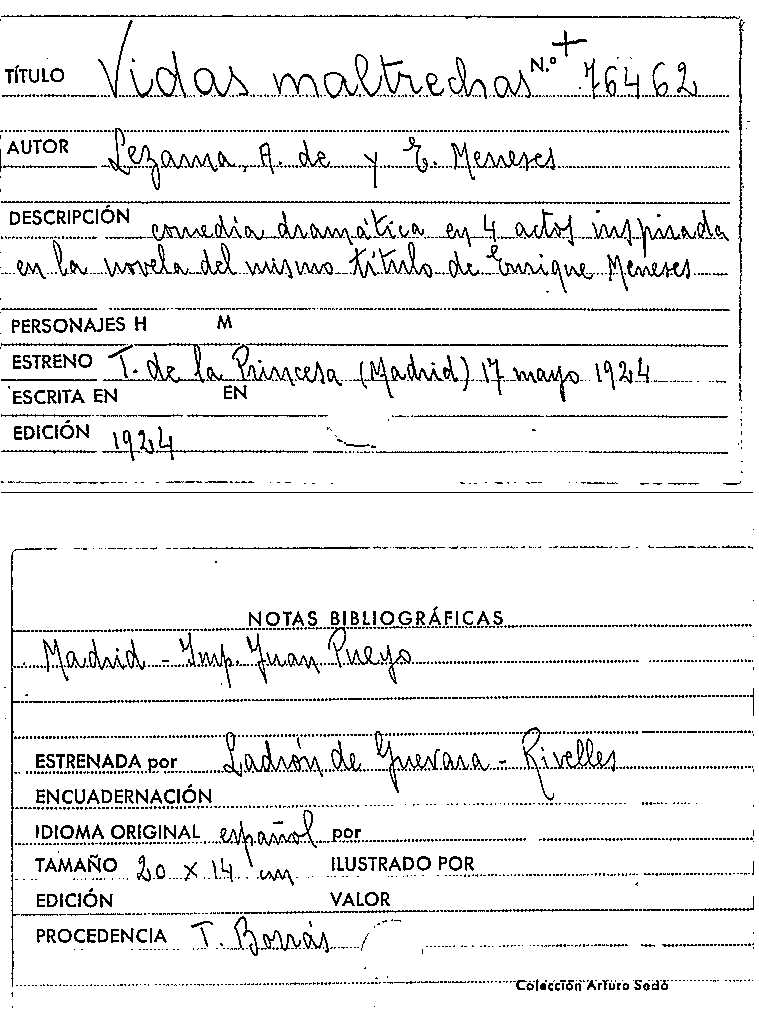 TÍTULO Vidas maltrechas N.º + 76462
AUTOR Lezama, A. de y E. Meneses
DESCRIPCIÓN comedia dramática en 4 actos inspirada
en la novela del mismo título de Enrique Meneses
PERSONAJES H M
ESTRENO T. de la Princesa (Madrid) 17 mayo 1924
ESCRITA EN EN
EDICIÓN 1924
NOTAS BIBLIOGRÁFICAS
Madrid - Imp. Juan Pueyo
ESTRENADA por Ladrón de Guevara - Rivelles
ENCUADERNACIÓN
IDIOMA ORIGINAL español por
TAMAÑO 20 x 14 cm ILUSTRADO POR
EDICIÓN VALOR
PROCEDENCIA T. Borrás
Colección Arturo Sedó